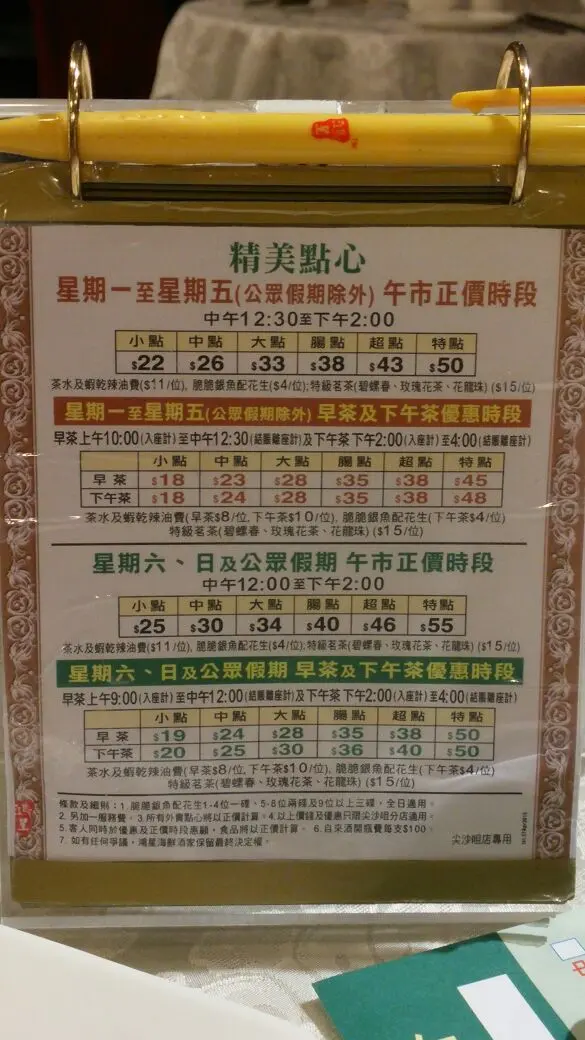 精美點心
星期一至星期五(公眾假期除外) 午市正價時段
中午12:30至下午2:00
小點 中點 大點 腸點 超點 特點
$22 $26 $33 $38 $43 $50
茶水及蝦乾辣油費($11/位), 脆脆銀魚配花生($4/位);特級茗茶(碧螺春、玫瑰花茶、花龍珠) ($15/位)
星期一至星期五(公眾假期除外) 早茶及下午茶優惠時段
早茶上午10:00(入座計)至中午12:30(結賬離座計)及下午茶 下午2:00(入座計)至4:00(結賬離座計)
小點 中點 大點 腸點 超點 特點
早茶 $18 $23 $28 $35 $38 $45
下午茶 $18 $24 $28 $35 $38 $48
茶水及蝦乾辣油費(早茶$8/位,下午茶$10/位), 脆脆銀魚配花生(下午茶$4/位)
特級茗茶(碧螺春、玫瑰花茶、花龍珠) ($15/位)
星期六、日及公眾假期 午市正價時段
中午12:00至下午2:00
小點 中點 大點 腸點 超點 特點
$25 $30 $34 $40 $46 $55
茶水及蝦乾辣油費($11/位), 脆脆銀魚配花生($4/位);特級茗茶(碧螺春、玫瑰花茶、花龍珠) ($15/位)
星期六、日及公眾假期 早茶及下午茶優惠時段
早茶上午9:00(入座計)至中午12:00(結賬離座計)及下午茶 下午2:00(入座計)至4:00(結賬離座計)
小點 中點 大點 腸點 超點 特點
早茶 $19 $24 $28 $35 $38 $50
下午茶 $20 $25 $30 $36 $40 $50
茶水及蝦乾辣油費(早茶$8/位,下午茶$10/位), 脆脆銀魚配花生(下午茶$4/位)
特級茗茶(碧螺春、玫瑰花茶、花龍珠) ($15/位)
條款及細則：1. 脆脆銀魚配花生1-4位一碟，5-8位兩碟及9位以上三碟，全日適用。
2. 另加一服務費。3.所有外賣點心將以正價計算。4.以上價錢及優惠只限尖沙咀分店適用。
5. 客人同時於優惠及正價時段惠顧，食品將以正價計算。 6. 自來酒開瓶費每支$100。
7. 如有任何爭議，鴻星海鮮酒家保留最終決定權。
尖沙咀店專用